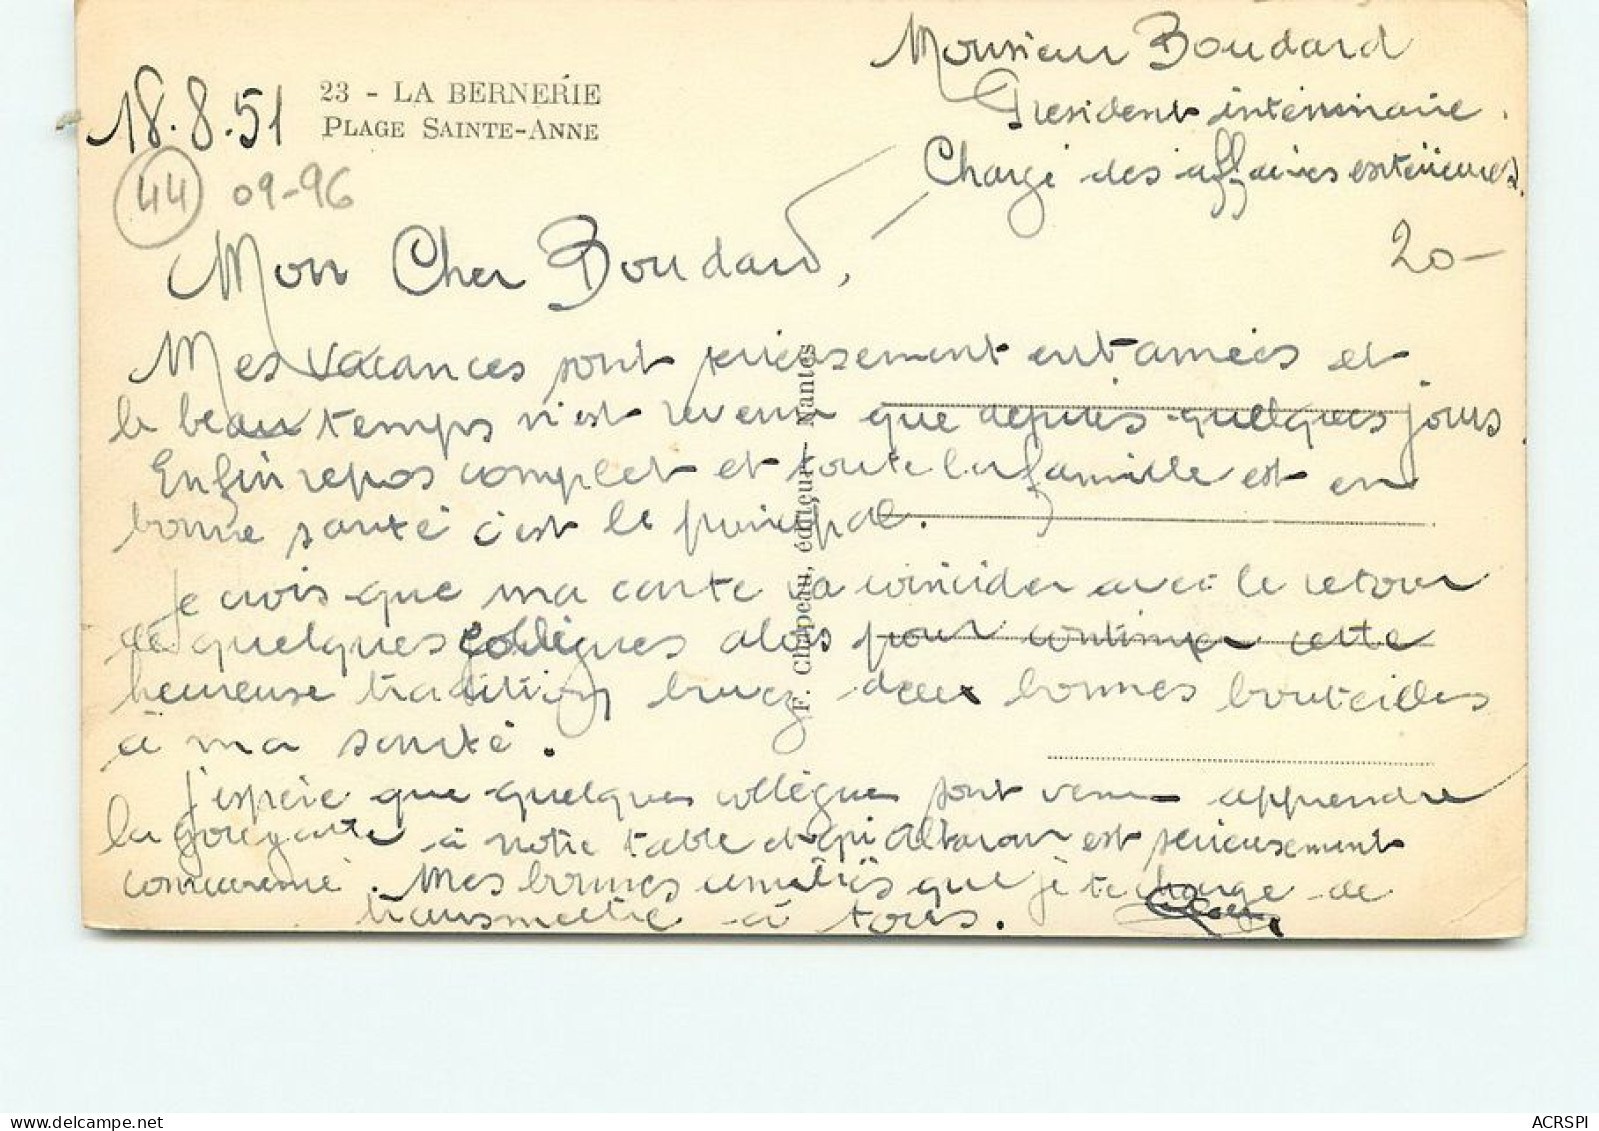 Monsieur Boudard
Président intérimaire.
Chargé des affaires extérieures.
18.8.51
23 - LA BERNERIE
PLAGE SAINTE-ANNE
44 09-96
20-
Mon Cher Boudard,
Mes vacances sont sérieusement entamées et
le beau temps n'est revenu que depuis quelques jours.
Enfin repos complet et toute la famille est en
bonne santé c'est le principal.
Je crois que ma carte va coincider avec le retour
de quelques collègues alors pour continuer cette
heureuse tradition buvez deux bonnes bouteilles
à ma santé.
J'espère que quelques collègues sont venus apprendre
la à notre table et qu' est sérieusement
concurrencé. Mes bonnes amitiés que je te charge de
transmettre à tous.
F. Chapeau, éditeur - Nantes
ACRSPI